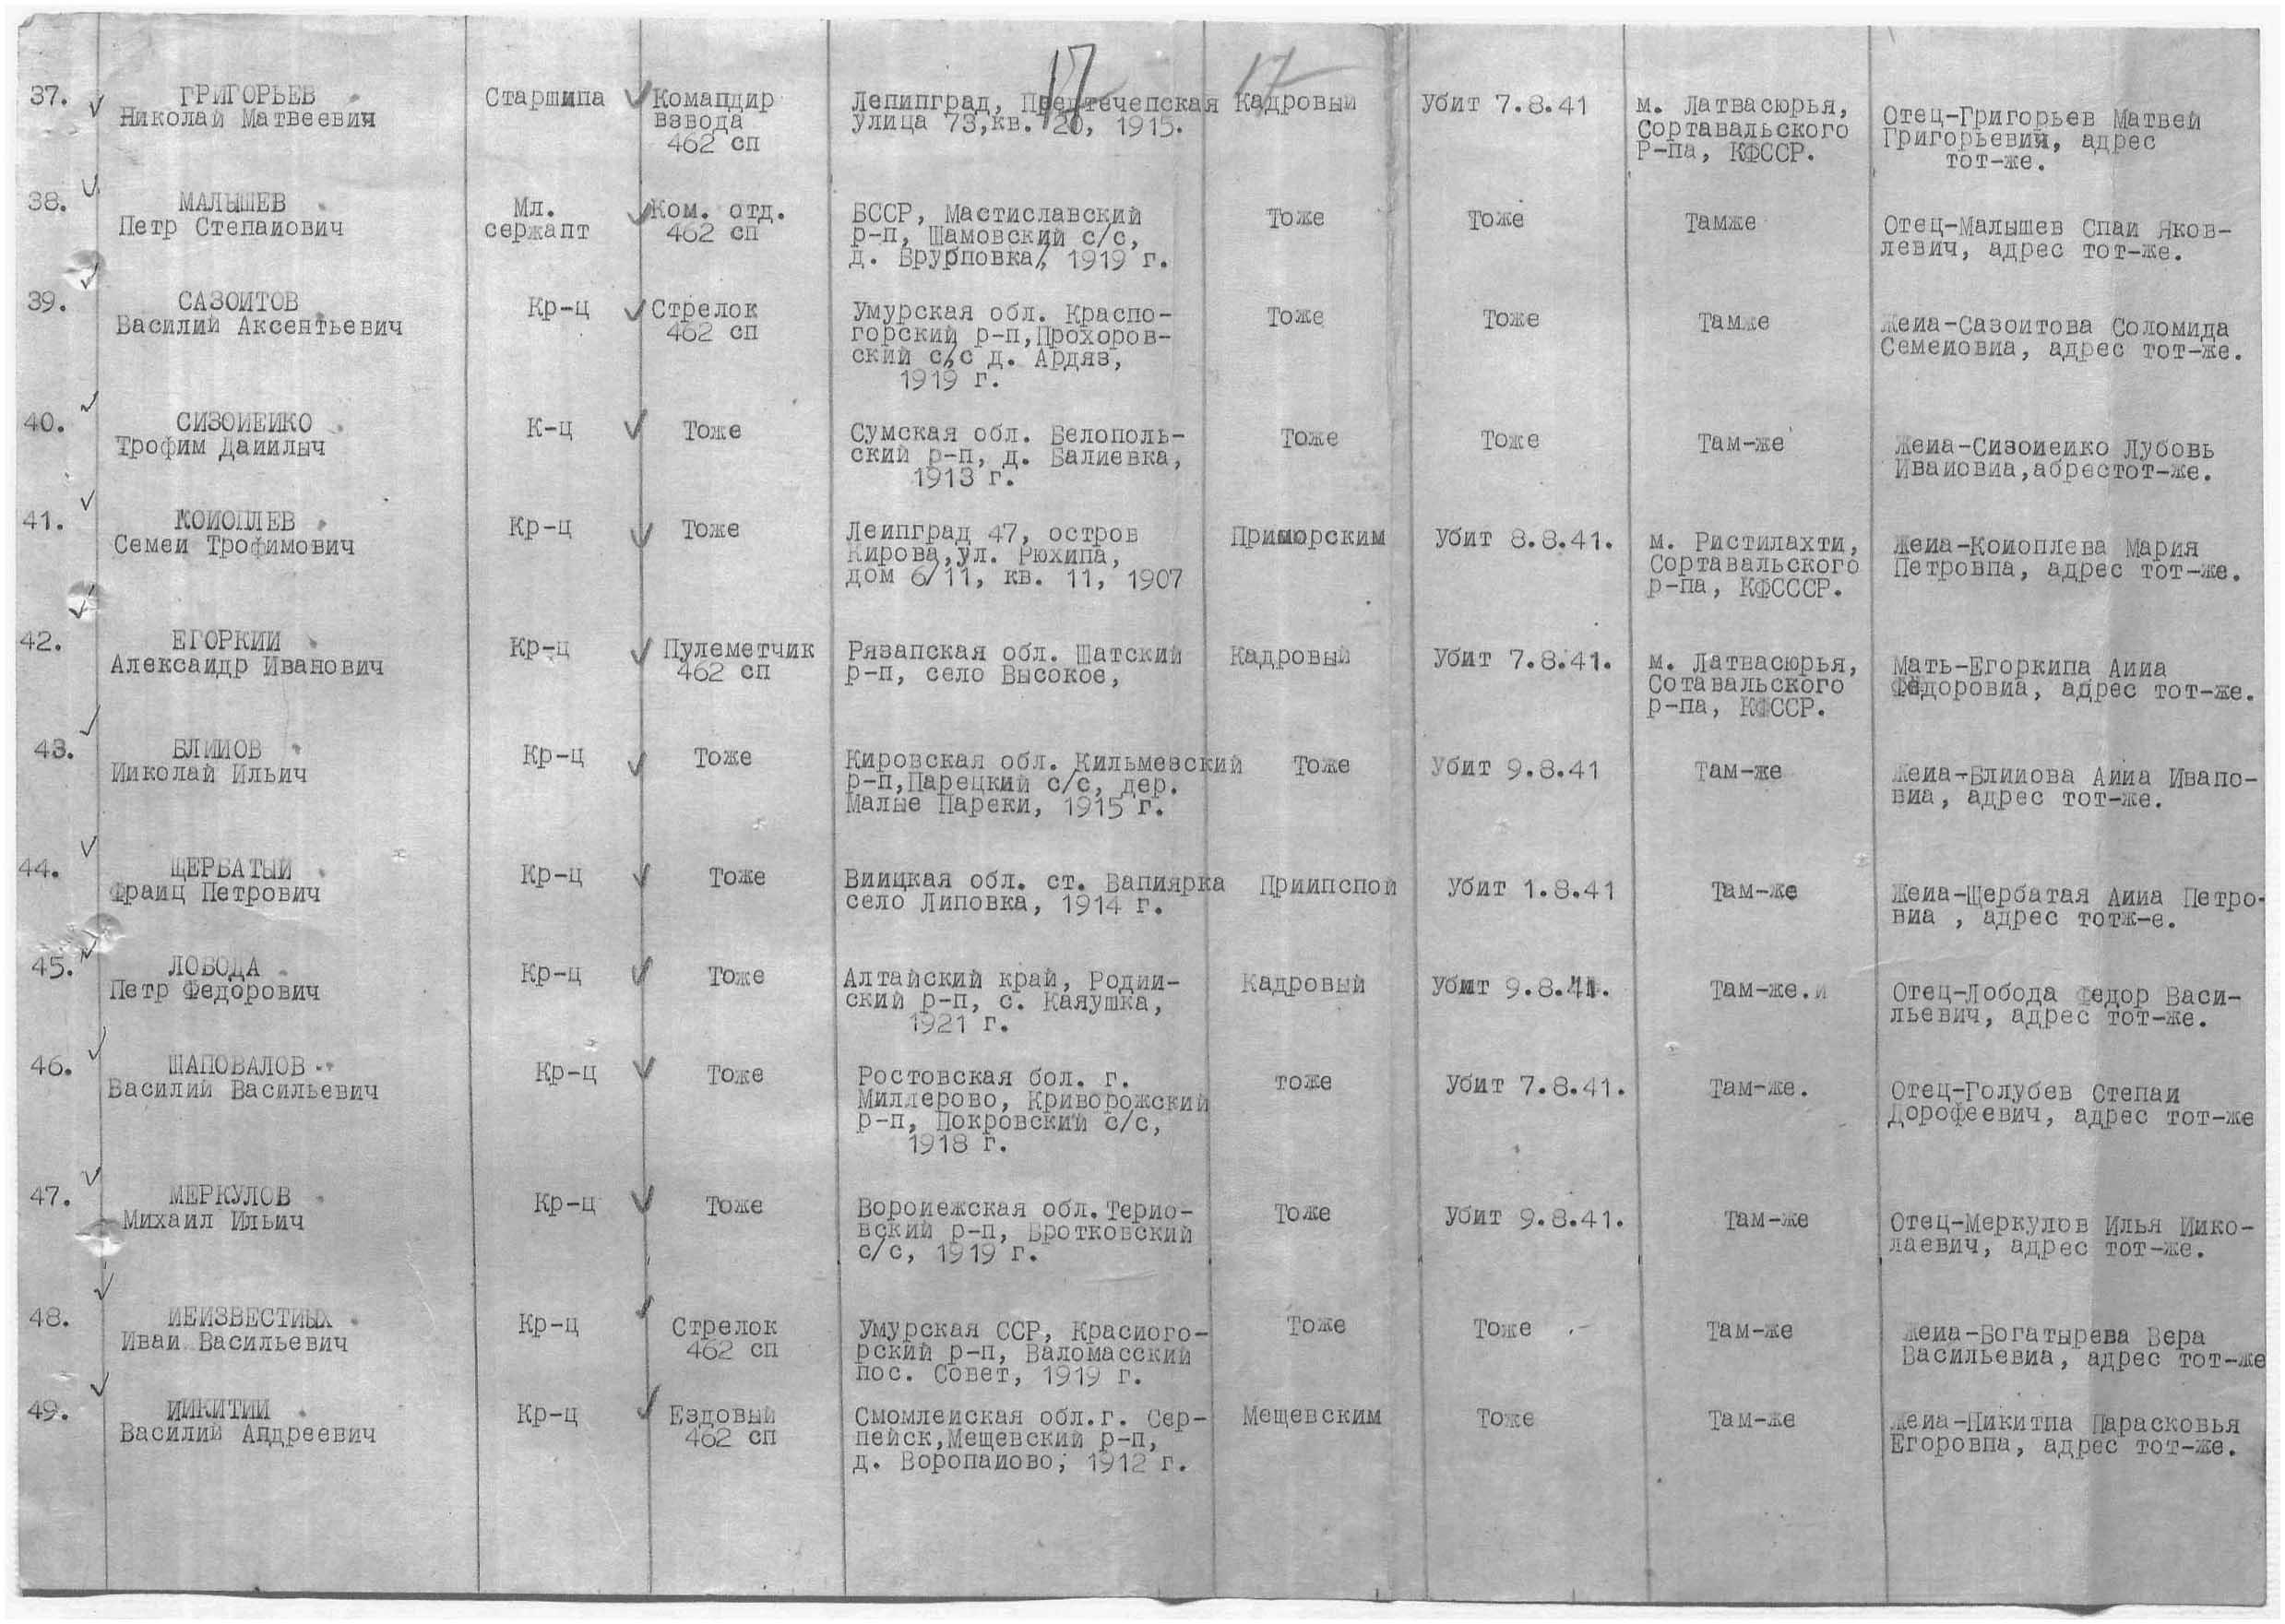 17 17
37. ГРИГОРЬЕВ
Николай Матвеевич
Старшипа
Командир
взвода
462 сп
Лепипград, Предтечепская
улица 73,кв. 20, 1915.
Кадровый
Убит 7.8.41
м. Латвасюрья,
Сортавальского
Р-па, КФССР.
Отец-Григорьев Матвей
Григорьевия, адрес
тот-же.
38. МАЛЫШЕВ
Петр Степаиович
Мл.
сержапт
Ком. отд.
462 сп
БССР, Мастиславский
р-п, Шамовский с/с,
д. Врурповка, 1919 г.
Тоже
Тоже
Тамже
Отец-Малышев Спаи Яков-
левич, адрес тот-же.
39. САЗОИТОВ
Василий Аксеитьевич
Кр-ц
Стрелок
462 сп
Умурская обл. Краспо-
горский р-п,Прохоров-
ский с/с д. Ардяз,
1919 г.
Тоже
Тоже
Тамже
Жеиа-Сазоитова Соломида
Семеиовиа, адрес тот-же.
40. СИЗОИЕИКО
Трофим Даиилыч
К-ц
Тоже
Сумская обл. Белополь-
ский р-п, д. Валиевка,
1913 г.
Тоже
Тоже
Там-же
Жеиа-Сизоиеико Лубовь
Иваиовиа,абрестот-же.
41. КОИОПЛЕВ
Семеи Трофимович
Кр-ц
Тоже
Леипград 47, остров
Кирова,ул. Рюхипа,
дом 6/11, кв. 11, 1907
Приморским
Убит 8.8.41.
м. Ристилахти,
Сортавальского
р-па, КФСССР.
Жеиа-Коиоплева Мария
Петровпа, адрес тот-же.
42. ЕГОРКИИ
Алексаидр Иванович
Кр-ц
Пулеметчик
462 сп
Рязапская обл. Шатский
р-п, село Высокое,
Кадровый
Убит 7.8.41.
м. Латвасюрья,
Сотавальского
р-па, КФССР.
Мать-Егоркипа Аииа
Федоровиа, адрес тот-же.
43. БЛИИОВ
Ииколай Ильич
Кр-ц
Тоже
Кировская обл. Кильмезский
р-п,Парецкий с/с, дер.
Малые Пареки, 1915 г.
Тоже
Убит 9.8.41
Там-же
Жеиа-Блииова Аииа Ивапо-
виа, адрес тот-же.
44. ЩЕРБАТЫЙ
Фраиц Петрович
Кр-ц
Тоже
Виицкая обл. ст. Вапиярка
село Липовка, 1914 г.
Приипспой
Убит 1.8.41
Там-же
Жеиа-Щербатая Аииа Петро-
виа , адрес тотж-е.
45. ЛОБОДА
Петр Федорович
Кр-ц
Тоже
Алтайский край, Родии-
ский р-п, с. Каяушка,
1921 г.
Кадровый
Убит 9.8.41.
Там-же.
Отец-Лобода Федор Васи-
льевич, адрес тот-же.
46. ШАПОВАЛОВ
Василий Васильевич
Кр-ц
Тоже
Ростовская бол. г.
Миллерово, Криворожский
р-п, Покровский с/с,
1918 г.
тоже
Убит 7.8.41.
Там-же.
Отец-Голубев Степаи
Дорофеевич, адрес тот-же
47. МЕРКУЛОВ
Михаил Ильич
Кр-ц
Тоже
Вороиежская обл.Терио-
вский р-п, Бротковский
с/с, 1919 г.
Тоже
Убит 9.8.41.
Там-же
Отец-Меркулов Илья Иико-
лаевич, адрес тот-же.
48. ИЕИЗВЕСТИЫХ
Иваи Васильевич
Кр-ц
Стрелок
462 сп
Умурская ССР, Красиого-
рский р-п, Валомасский
пос. Совет, 1919 г.
Тоже
Тоже
Там-же
Жеиа-Богатырева Вера
Васильевиа, адрес тот-же
49. ИИКИТИИ
Василий Апдреевич
Кр-ц
Ездовый
462 сп
Смомлеиская обл.г. Сер-
пейск,Мещевский р-п,
д. Воропаиово, 1912 г.
Мещевским
Тоже
Там-же
Жеиа-Пикитпа Парасковья
Егоровпа, адрес тот-же.